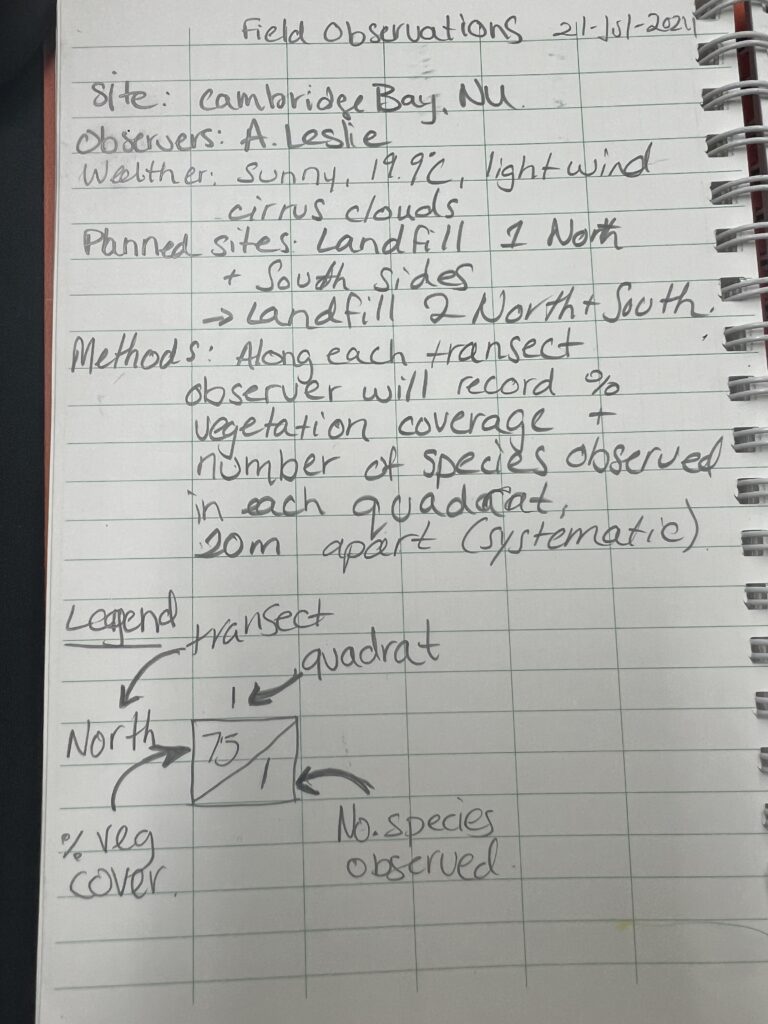 Field Observations 21-Jul-2024
Site: Cambridge Bay, NU.
Observers: A. Leslie
Weather: Sunny, 19.9°C, light wind
cirrus clouds
Planned sites: Landfill 1 North
+ South sides
→ Landfill 2 North + South.
Methods: Along each transect
observer will record %
vegetation coverage +
number of species observed
in each quadrat,
20m apart (systematic)
Legend
transect
quadrat
1
North
75/1
% veg
cover.
No. species
observed.